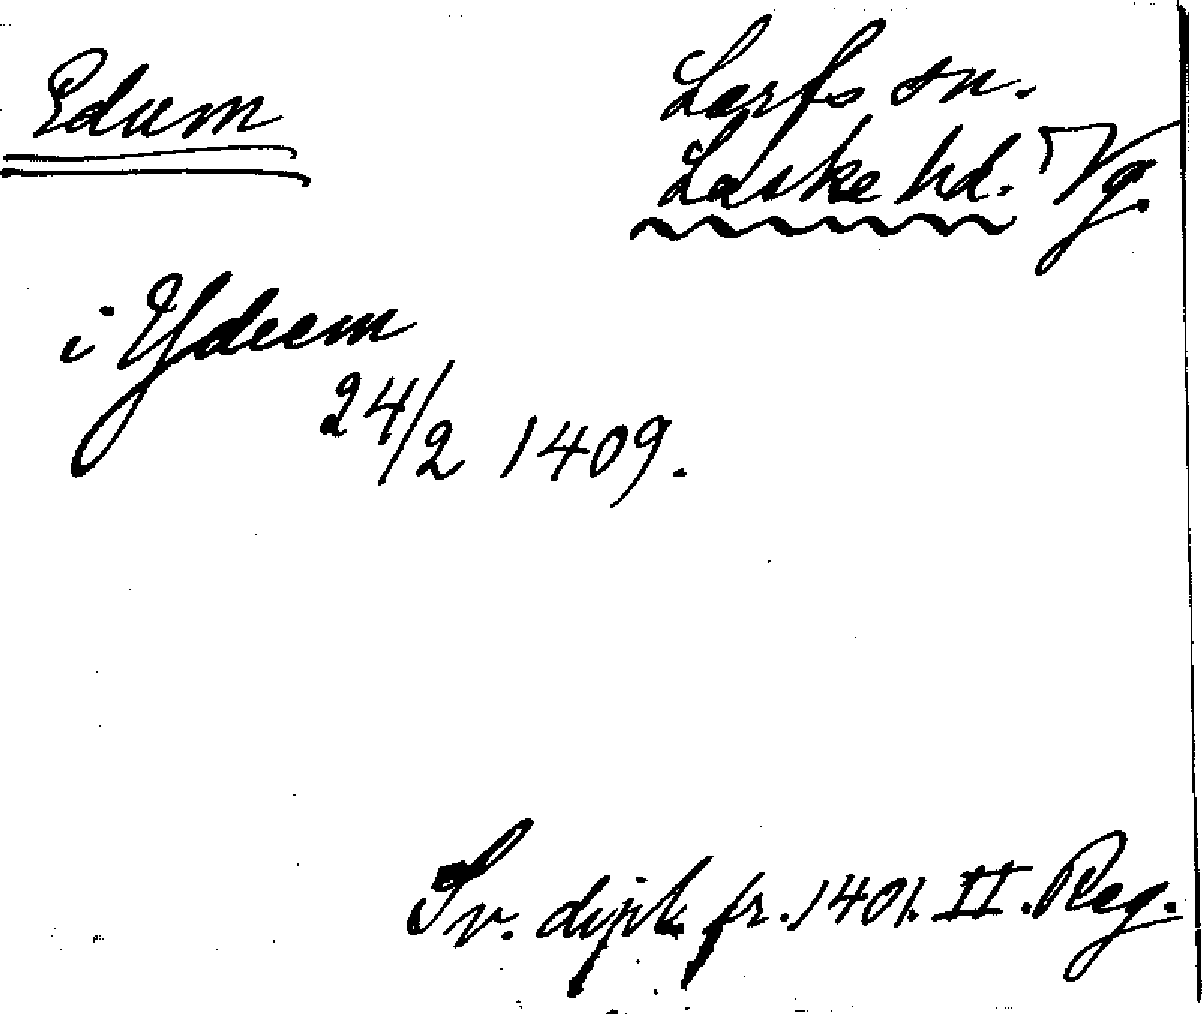 Edum
Larfs sn.
Laske hd. Vg.
i Ydeem
24/2 1409.
Sv. dipl. fr. 1401. II. Reg.